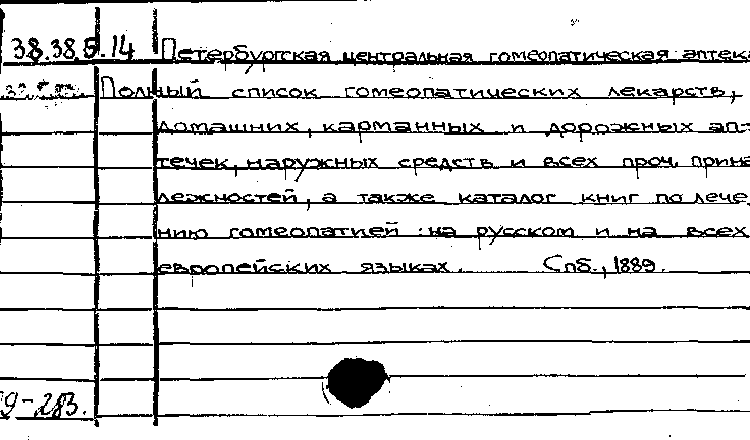 38.38 5.14 Петербургская центральная гомеопатическая аптека
Полный список гомеопатических лекарств,
домашних, карманных и дорожных ап-
течек, наружных средств и всех проч. прина
лежностей, а также каталог книг по лече
нию гомеопатией на русском и на всех
европейских языках. Спб., 1889.
9-283.